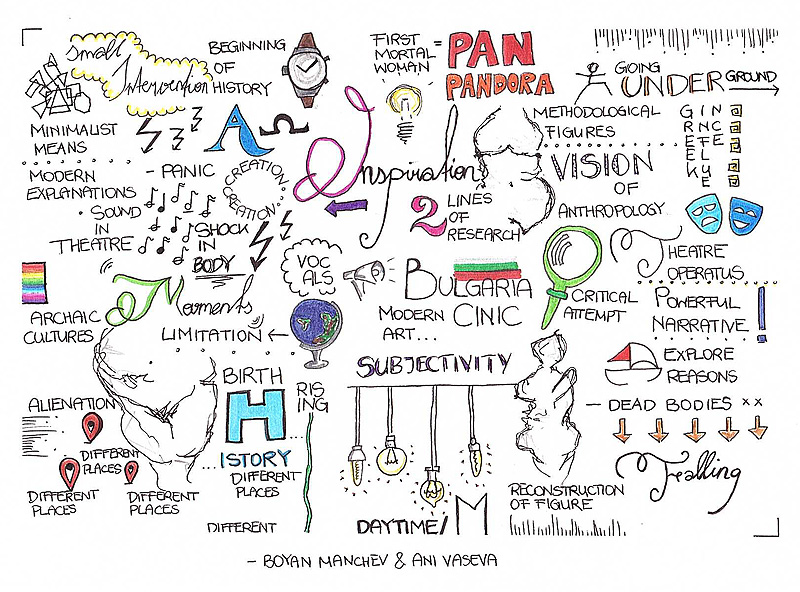 Small
Intervention
BEGINNING
OF
HISTORY
FIRST
MORTAL
WOMAN =
PAN
PANDORA
GOING
UNDERGROUND
MINIMALIST
MEANS
A Ω
METHODOLOGICAL
FIGURES
GIN
RNC
EFE
EL
KU
E
MODERN
EXPLANATIONS
- PANIC
CREATION
CREATION
Inspiration
VISION
OF
ANTHROPOLOGY
• SOUND
IN
THEATRE
SHOCK
IN
BODY
2 LINES
OF
RESEARCH
THEATRE
OPERATUS
VOC
ALS
Moments
BULGARIA
CINIC
MODERN
ART...
CRITICAL
ATTEMPT
POWERFUL
NARRATIVE !
ARCHAIC
CULTURES
LIMITATION ←
SUBJECTIVITY
EXPLORE
REASONS
BIRTH
H
ISTORY
RIS
ING
ALIENATION
— DEAD BODIES XX
DIFFERENT
PLACES
DIFFERENT
PLACES
DIFFERENT
PLACES
DIFFERENT
PLACES
DIFFERENT
Falling
RECONSTRUCTION
OF FIGURE
DAYTIME/M
- BOYAN MANCHEV & ANI VASEVA